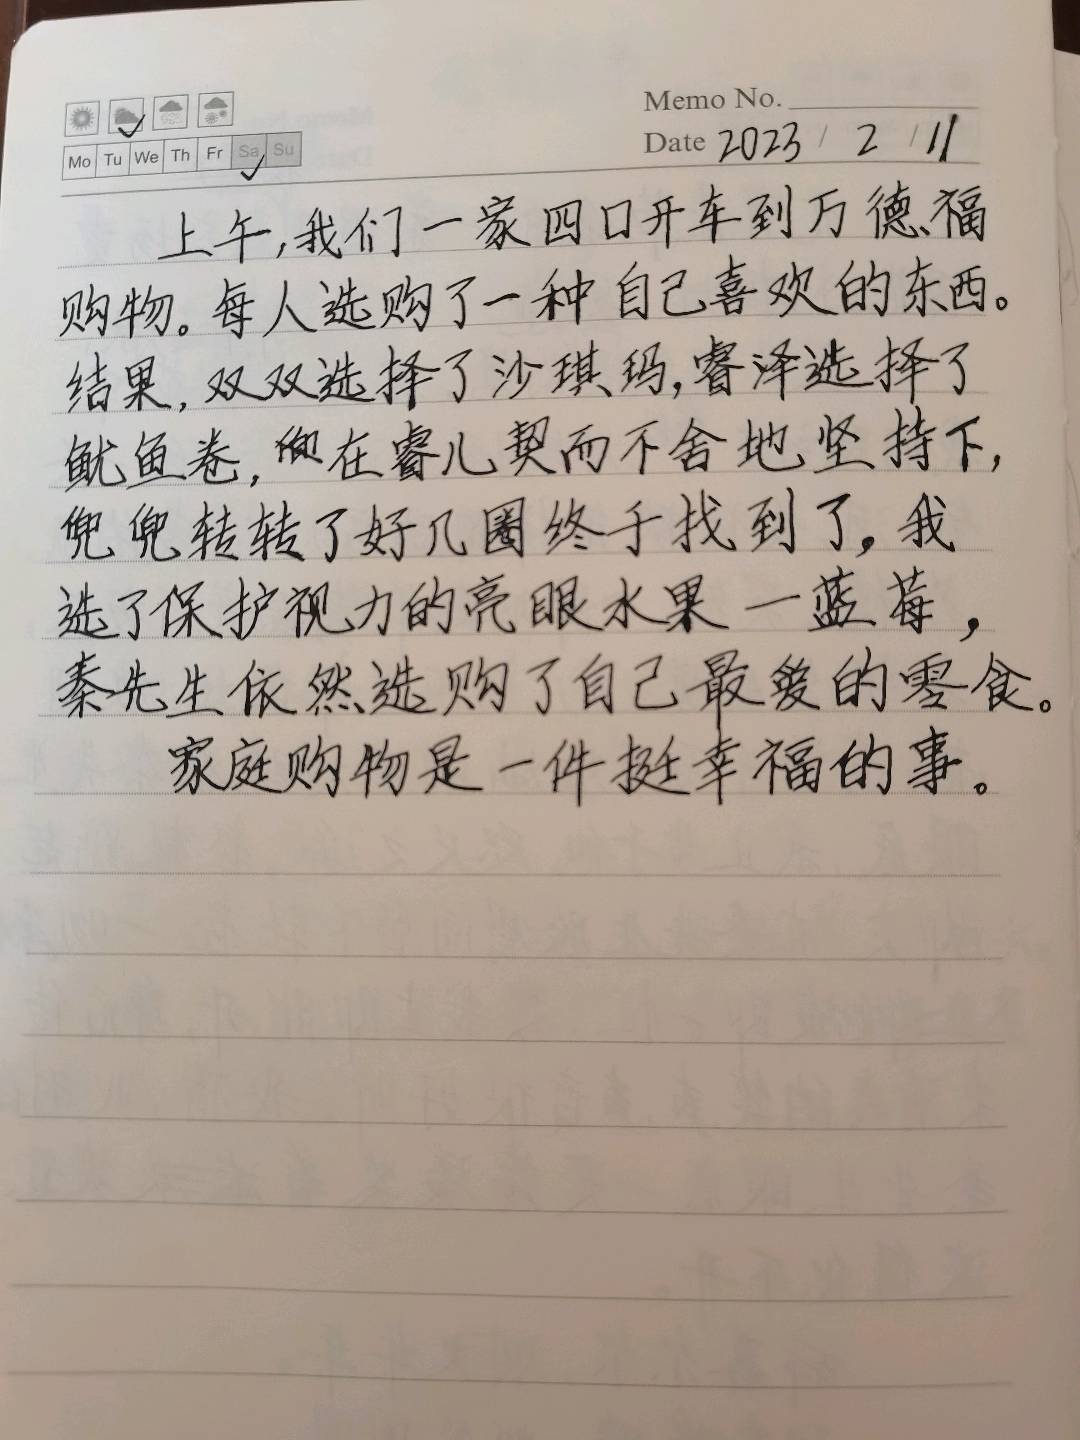 Memo No.
Mo Tu We Th Fr Sa Su
Date 2023 / 2 / 11
上午,我们一家四口开车到万德福
购物。每人选购了一种自己喜欢的东西。
结果,双双选择了沙琪玛,睿泽选择了
鱿鱼卷,在睿儿契而不舍地坚持下,
兜兜转转了好几圈终于找到了。我
选了保护视力的亮眼水果一蓝莓,
秦先生依然选购了自己最爱的零食。
家庭购物是一件挺幸福的事。